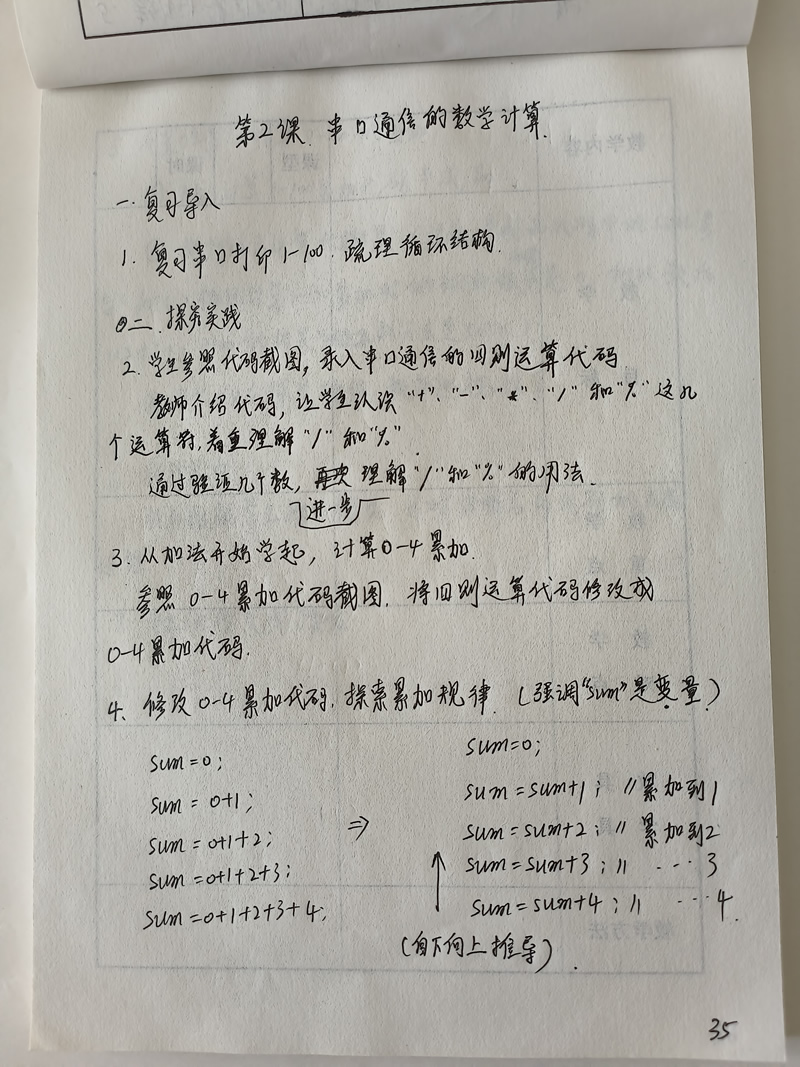 第2课 串口通信的数学计算.
一. 复习导入
1. 复习串口打印1-100. 疏理循环结构.
二. 探究实践
2. 学生参照代码截图, 录入串口通信的四则运算代码.
教师介绍代码, 让学生认识 "+"、"-"、"*"、"/" 和 "%" 这几
个运算符, 着重理解 "/" 和 "%".
通过验证几个数, 进一步理解 "/" 和 "%" 的用法.
3. 从加法开始学起, 计算0-4累加.
参照 0-4累加代码截图. 将四则运算代码修改成
0-4累加代码.
4. 修改0-4累加代码. 探索累加规律. (强调"sum"是变量)
sum=0;
sum = 0+1;
sum = 0+1+2;
sum = 0+1+2+3;
sum = 0+1+2+3+4;
⇒
sum=0;
sum = sum+1; // 累加到1
sum = sum+2; // 累加到2
sum = sum+3; // ... 3
sum = sum+4; // ... 4.
↑
(自下向上推导).
35